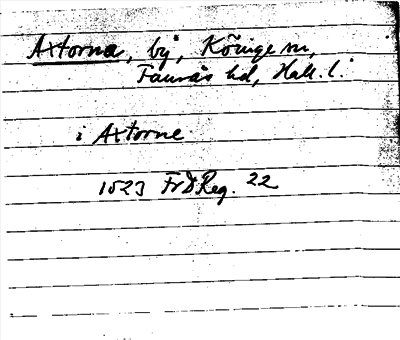 Axtorna, by, Köinge sn,
Faurås hd, Hall. l.
i Axtorne
1523 FrDReg. 22